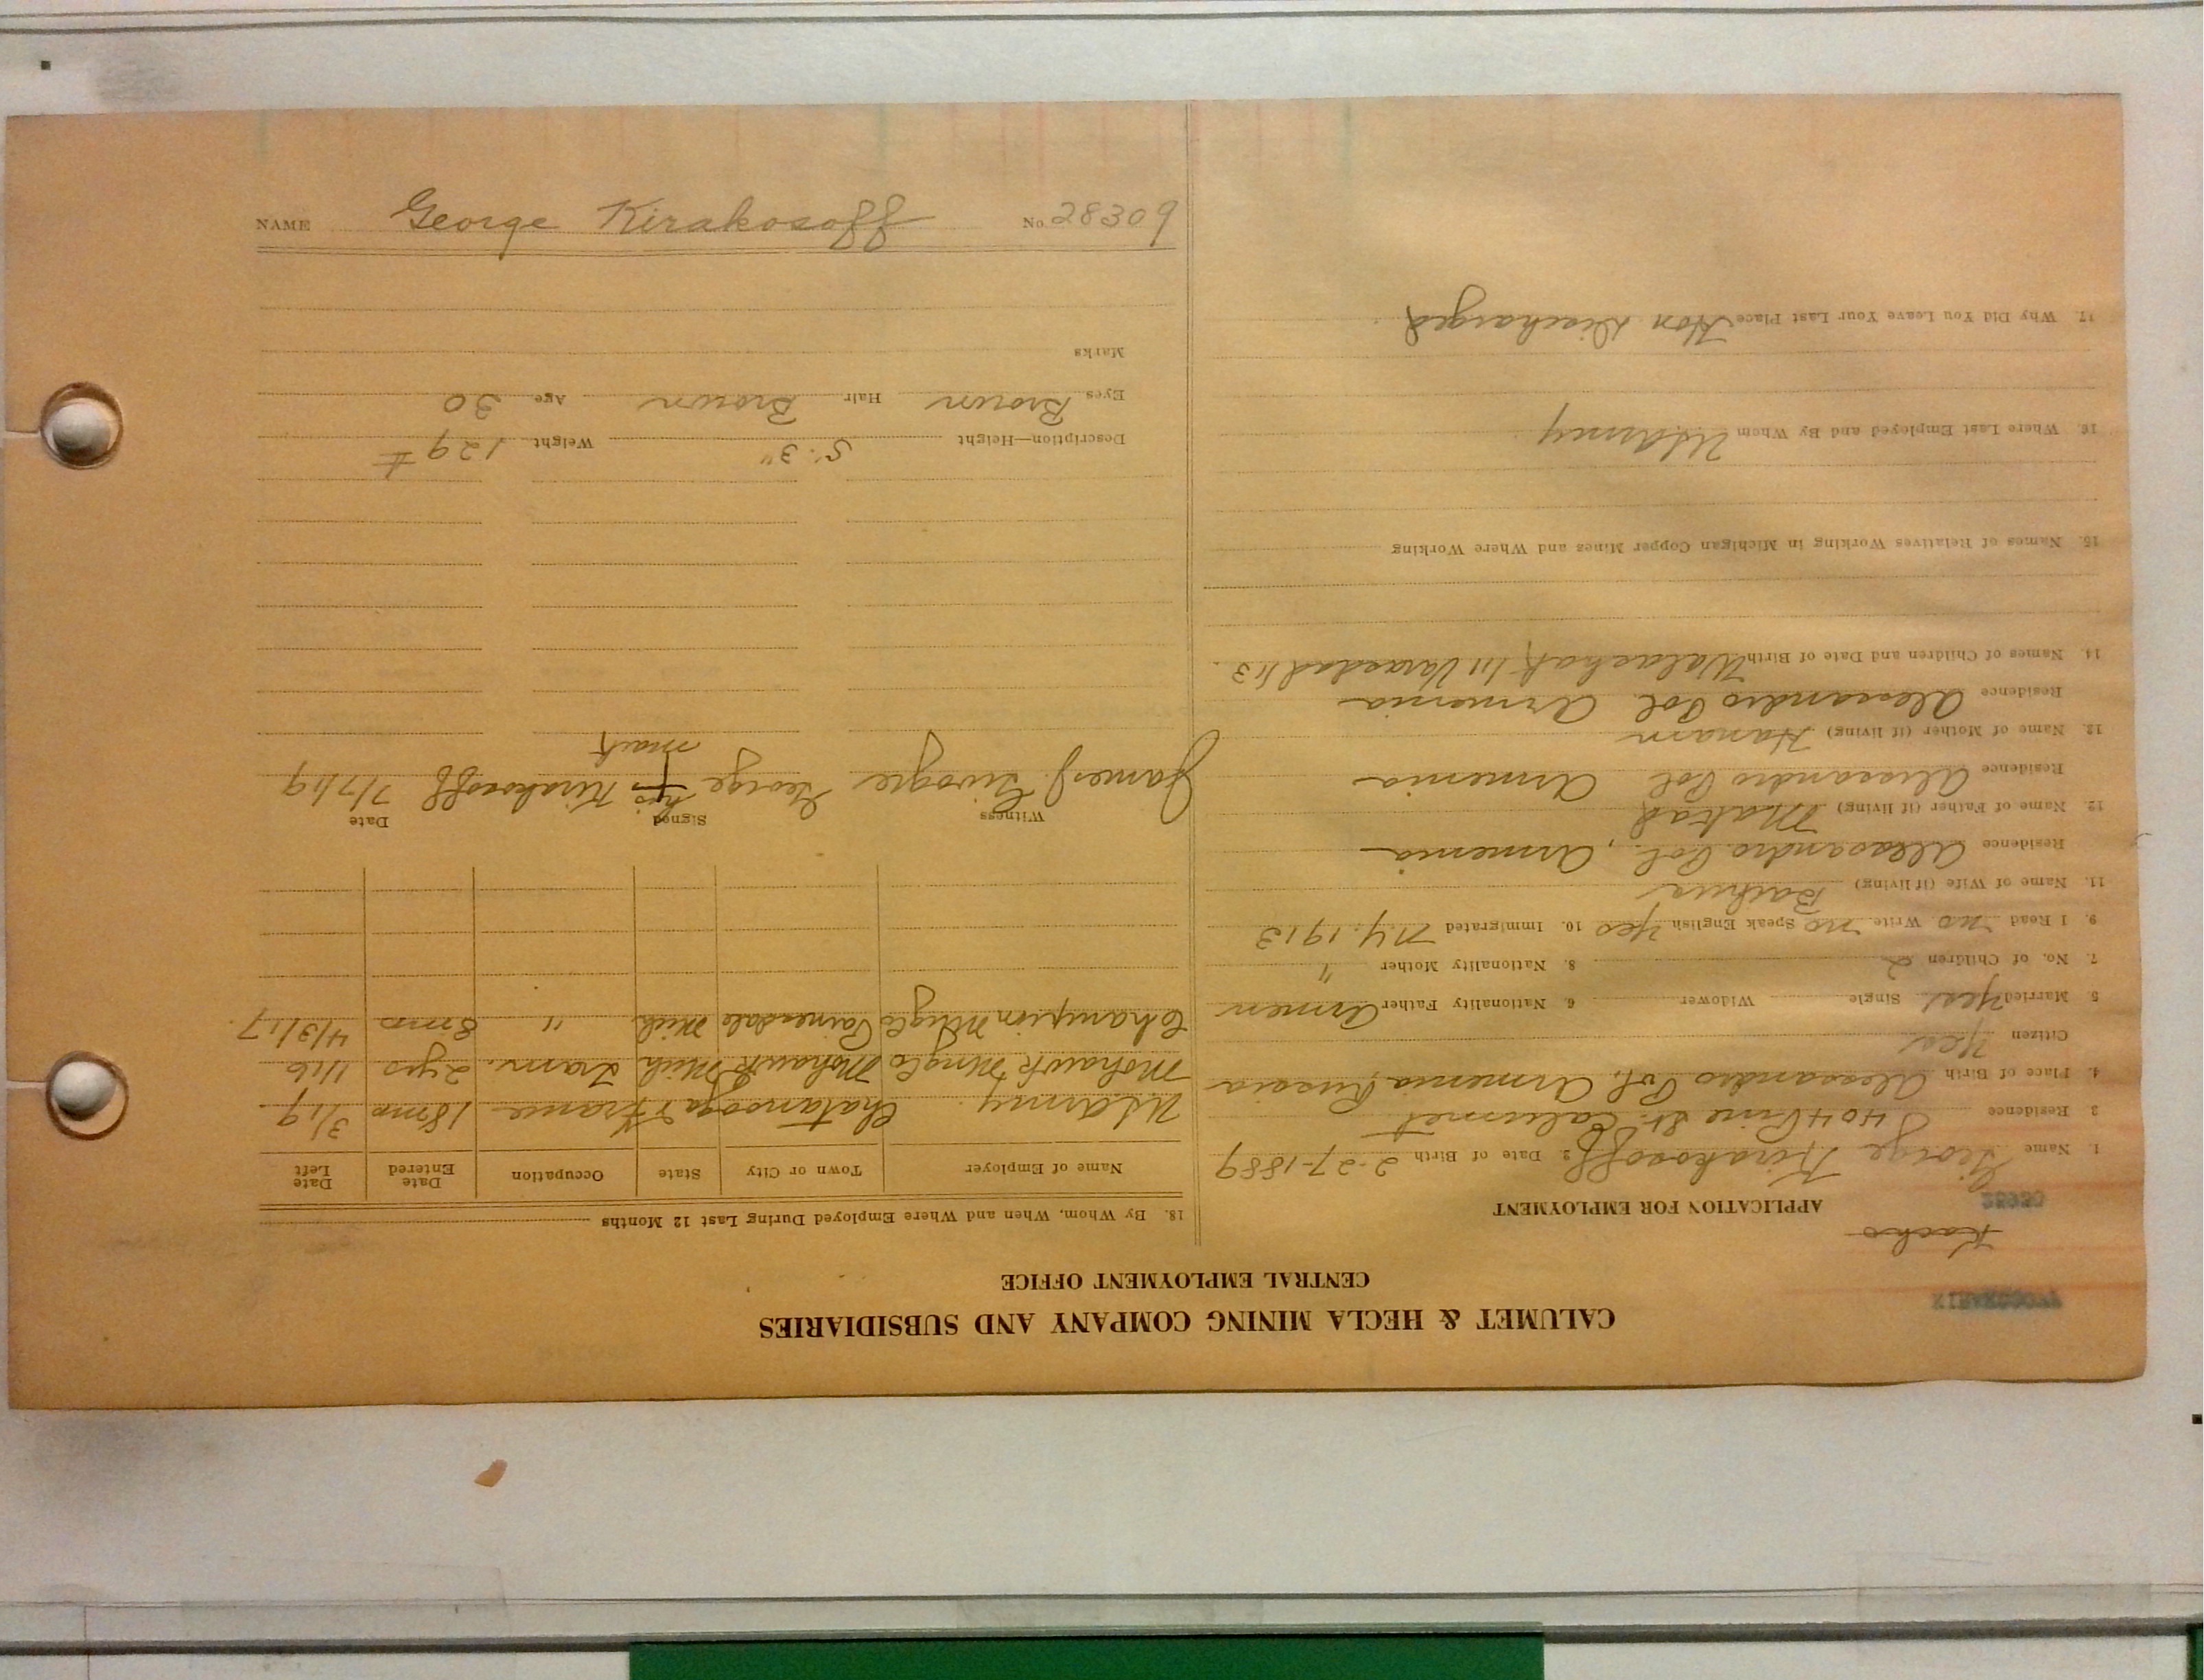 CALUMET & HECLA MINING COMPANY AND SUBSIDIARIES
CENTRAL EMPLOYMENT OFFICE
Kocho
APPLICATION FOR EMPLOYMENT
1. Name George Kirakosoff 2. Date of Birth 2-27-1889
3 Residence 5404 Pine St. Calumet
4. Place of Birth Alessandro Pol, Armenia, Russia
Citizen Yes
5 Married Yes Single Widower 6. Nationality Father Armen
7. No. of Children 2 8. Nationality Mother "
9. I Read no Write no Speak English Yes 10. Immigrated N.Y. 1913
11. Name of Wife (if living)
Residence Alessandro Pol, Armenia
12. Name of Father (if living)
Residence Alessandro Pol Armenia
13. Name of Mother (if living)
Residence Alessandro Pol. Armenia
14 Names of Children and Date of Birth
15. Names of Relatives Working in Michigan Copper Mines and Where Working
16. Where Last Employed and By Whom US Army
17. Why Did You Leave Your Last Place Hon Discharged
18. By Whom, When and Where Employed During Last 12 Months
Name of Employer Town or City State Occupation Date Entered Date Left
US Army. Chatanooga & France 18 mo 3/19
Mohawk Mng Co Mohawk Mich Mich Tram. 2 yrs 1/16
Champion Mng Co Painesdale Mich. " 8 mo 4/3/17
Witness Signed Date
James J. George his Kirakosoff 7/7/19
mark
Description—Height 5' 3" Weight 129 #
Eyes Brown Hair Brown Age 30
Marks
NAME George Kirakosoff No 28309